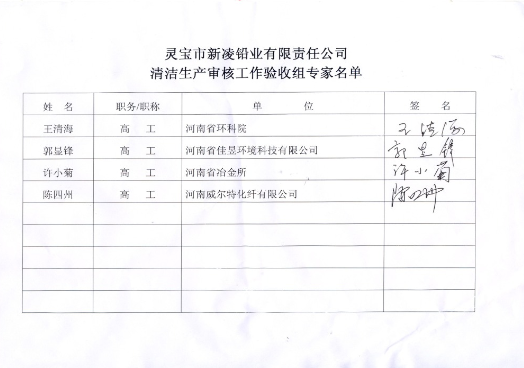 灵宝市新凌铅业有限责任公司
清洁生产审核工作验收组专家名单
姓 名 职务/职称 单 位 签 名
王清海 高 工 河南省环科院 王清海
郭显锋 高 工 河南省佳昱环境科技有限公司 郭显锋
许小菊 高 工 河南省冶金所 许小菊
陈四州 高 工 河南威尔特化纤有限公司 陈四州